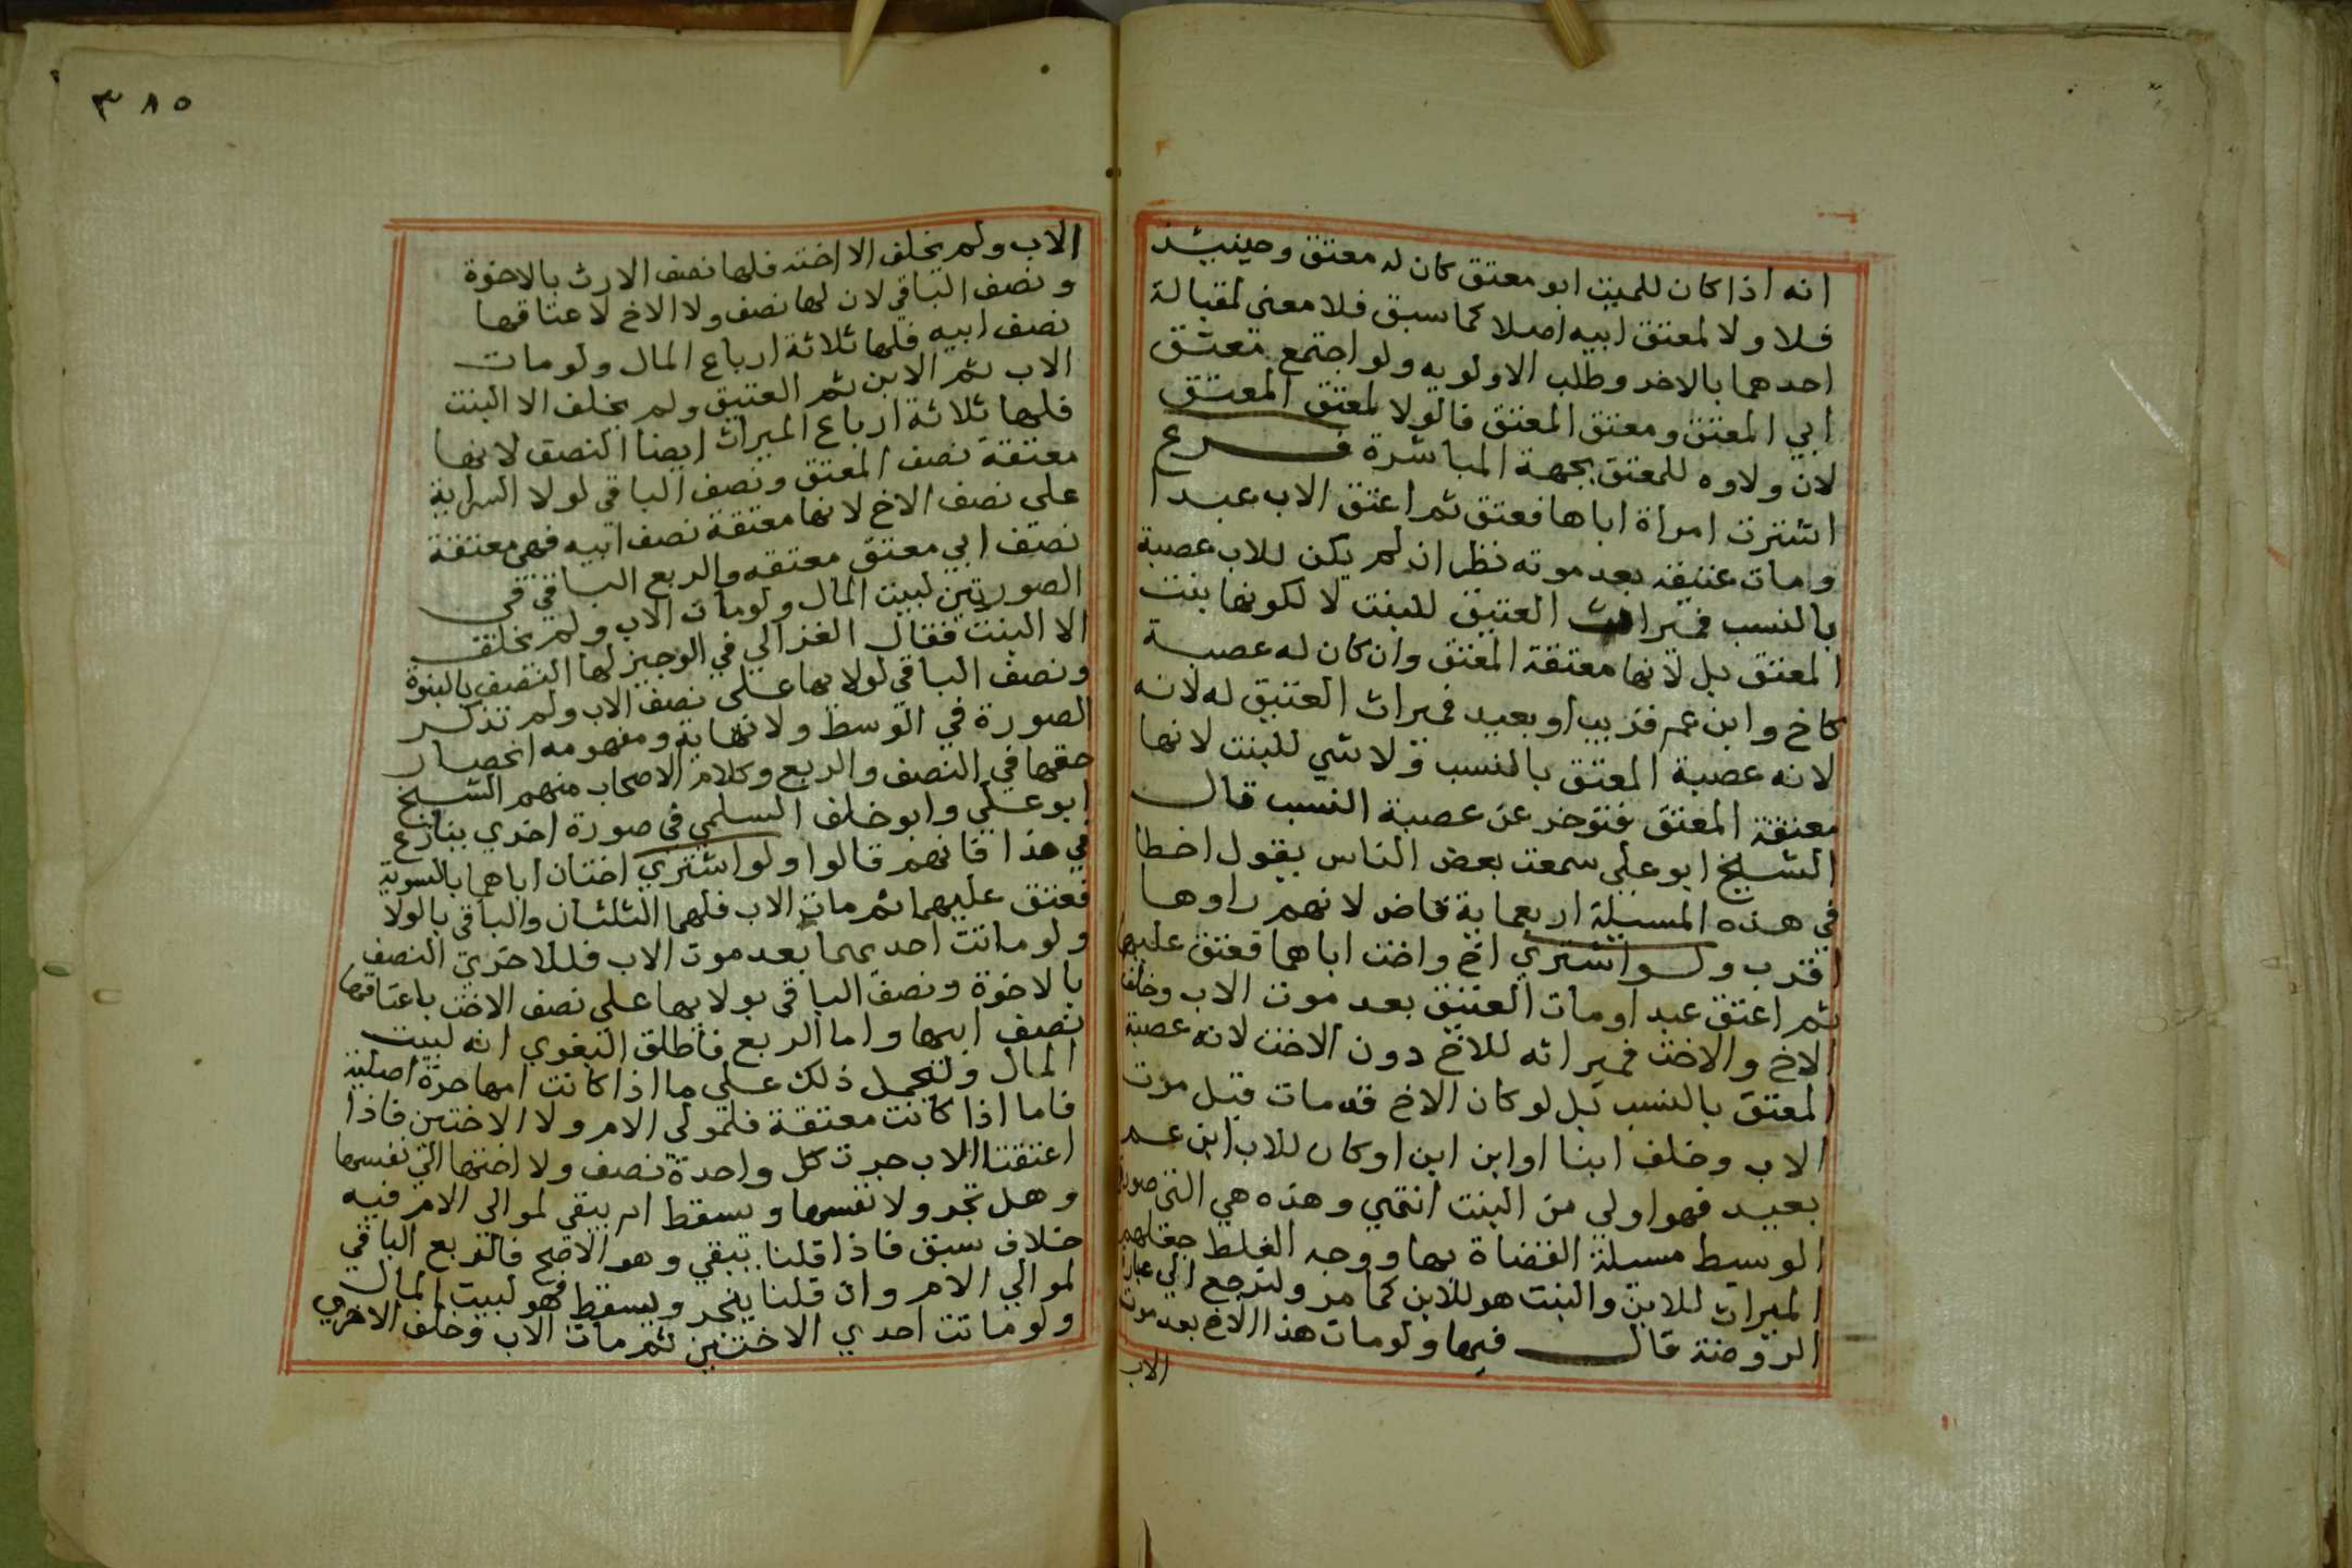 انه اذا كان للميت ابو معتق كان له معتق وحينيذ
فلا ولا لمعتق ابيه اصلا كما سبق فلا معنى لمقبالة
احدهما بالاخر وطلب الاولويه ولو اجتمع معتق
ابي المعتق ومعتق المعتق فالولا لمعتق المعتق
لان ولاوه للمعتق بجهة المباشرة فرع
اشترت امراة اباها فعتق ثم اعتق الاب عبدا
ومات عتيقه بعد موته نظر ان لم يكن للاب عصبة
بالنسب فميراث العتيق للبنت لا لكونها بنت
المعتق بل لانها معتقة المعتق وان كان له عصبة
كاخ وابن عم قريب او بعيد فميراث العتيق له لانه
لانه عصبة المعتق بالنسب ولا شي للبنت لانها
معتقة المعتق فتوخر عن عصبة النسب قال
الشيخ ابو علي سمعت بعض الناس يقول اخطا
في هذه المسيلة اربعماية قاض لانهم راوها
اقرب ولو اشتري اخ واخت اباهما فعتق عليهما
ثم اعتق عبدا ومات العتيق بعد موت الاب وخلف
الاخ والاخت فميراثه للاخ دون الاخت لانه عصبة
المعتق بالنسب بل لو كان الاخ قد مات قبل موت
الاب وخلف ابنا او ابن ابن او كان للاب ابن عم
بعيد فهو اولى من البنت انتهي وهذه هي التي صور
الوسيط مسيلة القضاة بها ووجه الغلط جعلهم
الميراث للابن والبنت هو للابن كما مر ولنرجع الي عبارة
الروضة قال فيها ولو مات هذا الاخ بعد موت
الاب
٣٨٥
الاب ولم يخلف الا اخته فلها نصف الارث بالاخوة
ونصف الباقي لان لها نصف ولا الاخ لاعتاقها
نصف ابيه فلها ثلاثة ارباع المال ولو مات
الاب ثم الابن ثم العتيق ولم يخلف الا البنت
فلها ثلاثة ارباع الميراث ايضا النصف لانها
معتقة نصف المعتق ونصف الباقي لولا السراية
على نصف الاخ لانها معتقة نصف ابيه فهي معتقة
نصف ابي معتق معتقه والربع الباقي في
الصورتين لبيت المال ولو مات الاب ولم يخلف
الا البنت فقال الغزالي في الوجيز لها النصف بالبنوة
ونصف الباقي لولايها على نصف الاب ولم تذكر
الصورة في الوسط ولا نهاية ومفهومه انحصار
حقها في النصف والربع وكلام الاصحاب منهم الشيخ
ابو علي وابو خلف السلمي في صورة اخري ينازع
في هذا فانهم قالوا ولو اشتري اختان اباهما بالسوية
فعتق عليهما ثم مات الاب فلهما الثلثان والباقي بالولا
ولو ماتت احديهما بعد موت الاب فللاخري النصف
بالاخوة ونصف الباقي بولايها على نصف الاخت باعتاقها
نصف ابيها واما الربع فاطلق البغوي انه لبيت
المال وليحمل ذلك على ما اذا كانت امها حرة اصلية
فاما اذا كانت معتقة فلمولي الام ولا الاختين فاذا
اعتقتا الاب جرت كل واحدة نصف ولا اختها التي نفسها
وهل تجر ولا نفسها ويسقط ام يبقي لموالي الام فيه
خلاف سبق فاذا قلنا يبقي وهو الاصح فالربع الباقي
لموالي الام وان قلنا ينجر ويسقط فهو لبيت المال
ولو ماتت احدي الاختين ثم مات الاب وخلف الاخري